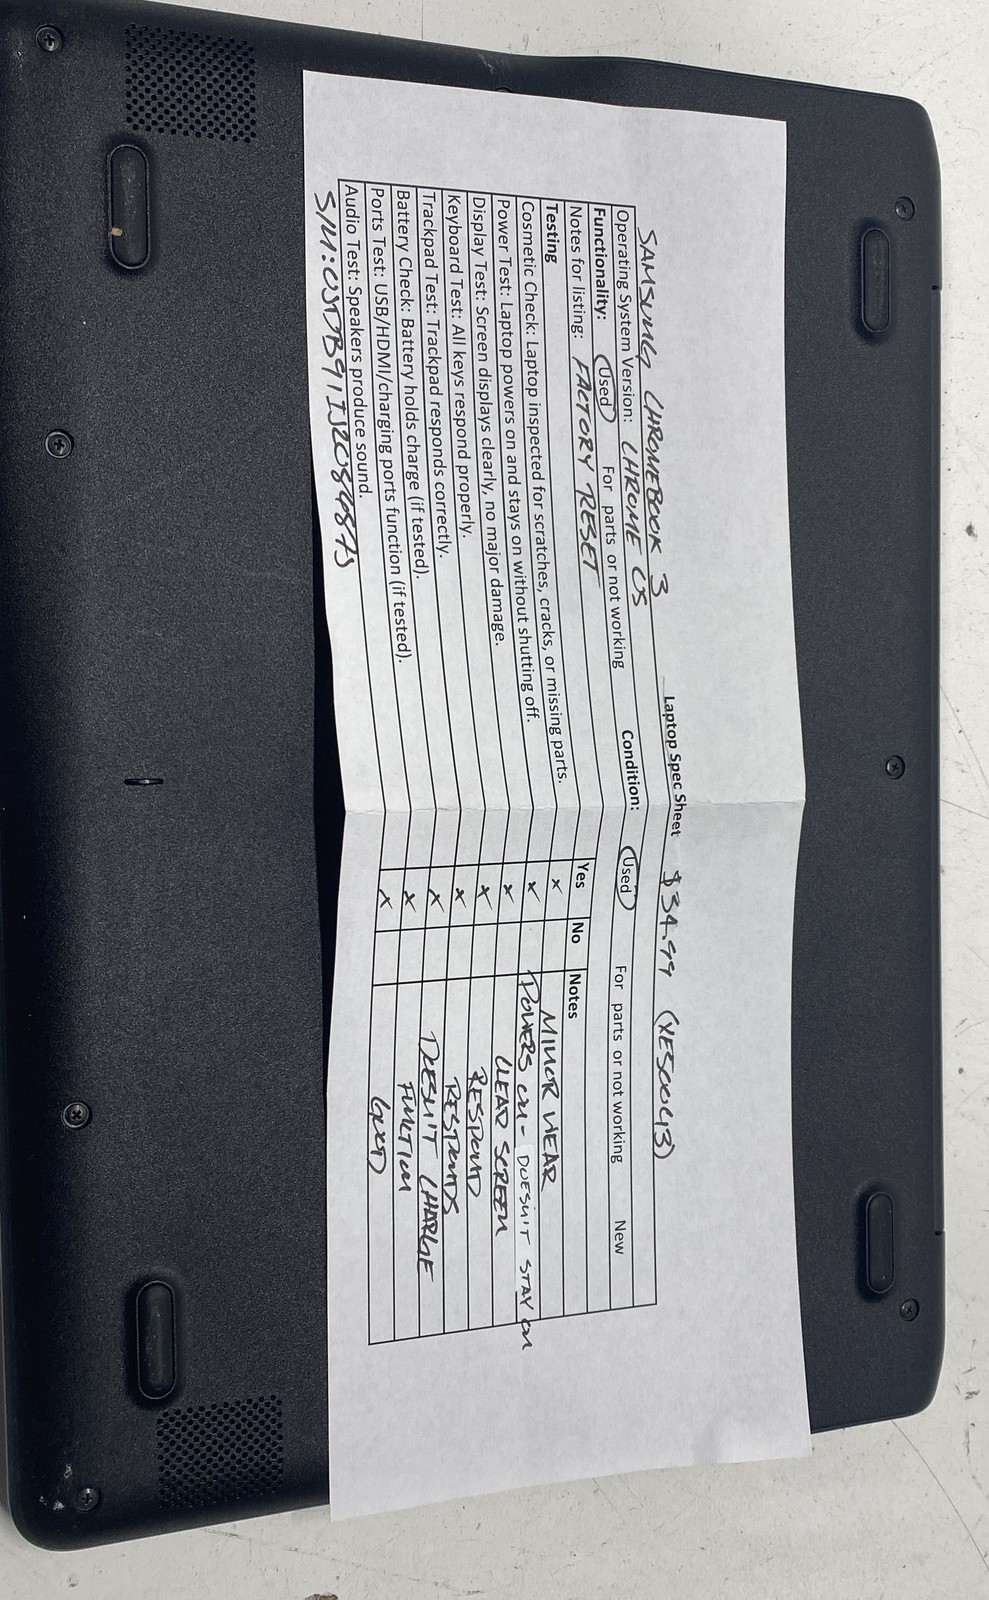 Laptop Spec Sheet $34.99 (XE500C13)
SAMSUNG CHROMEBOOK 3
Operating System Version: CHROME OS
Functionality: Used For parts or not working Condition: Used For parts or not working New
Notes for listing: FACTORY RESET
Testing Yes No Notes
Cosmetic Check: Laptop inspected for scratches, cracks, or missing parts. X MINOR WEAR
Power Test: Laptop powers on and stays on without shutting off. X POWERS ON - DOESN'T STAY ON
Display Test: Screen displays clearly, no major damage. X CLEAR SCREEN
Keyboard Test: All keys respond properly. X RESPOND
Trackpad Test: Trackpad responds correctly. X RESPONDS
Battery Check: Battery holds charge (if tested). X DOESN'T CHARGE
Ports Test: USB/HDMI/charging ports function (if tested). X FUNCTION
Audio Test: Speakers produce sound. X GOOD
S/N: